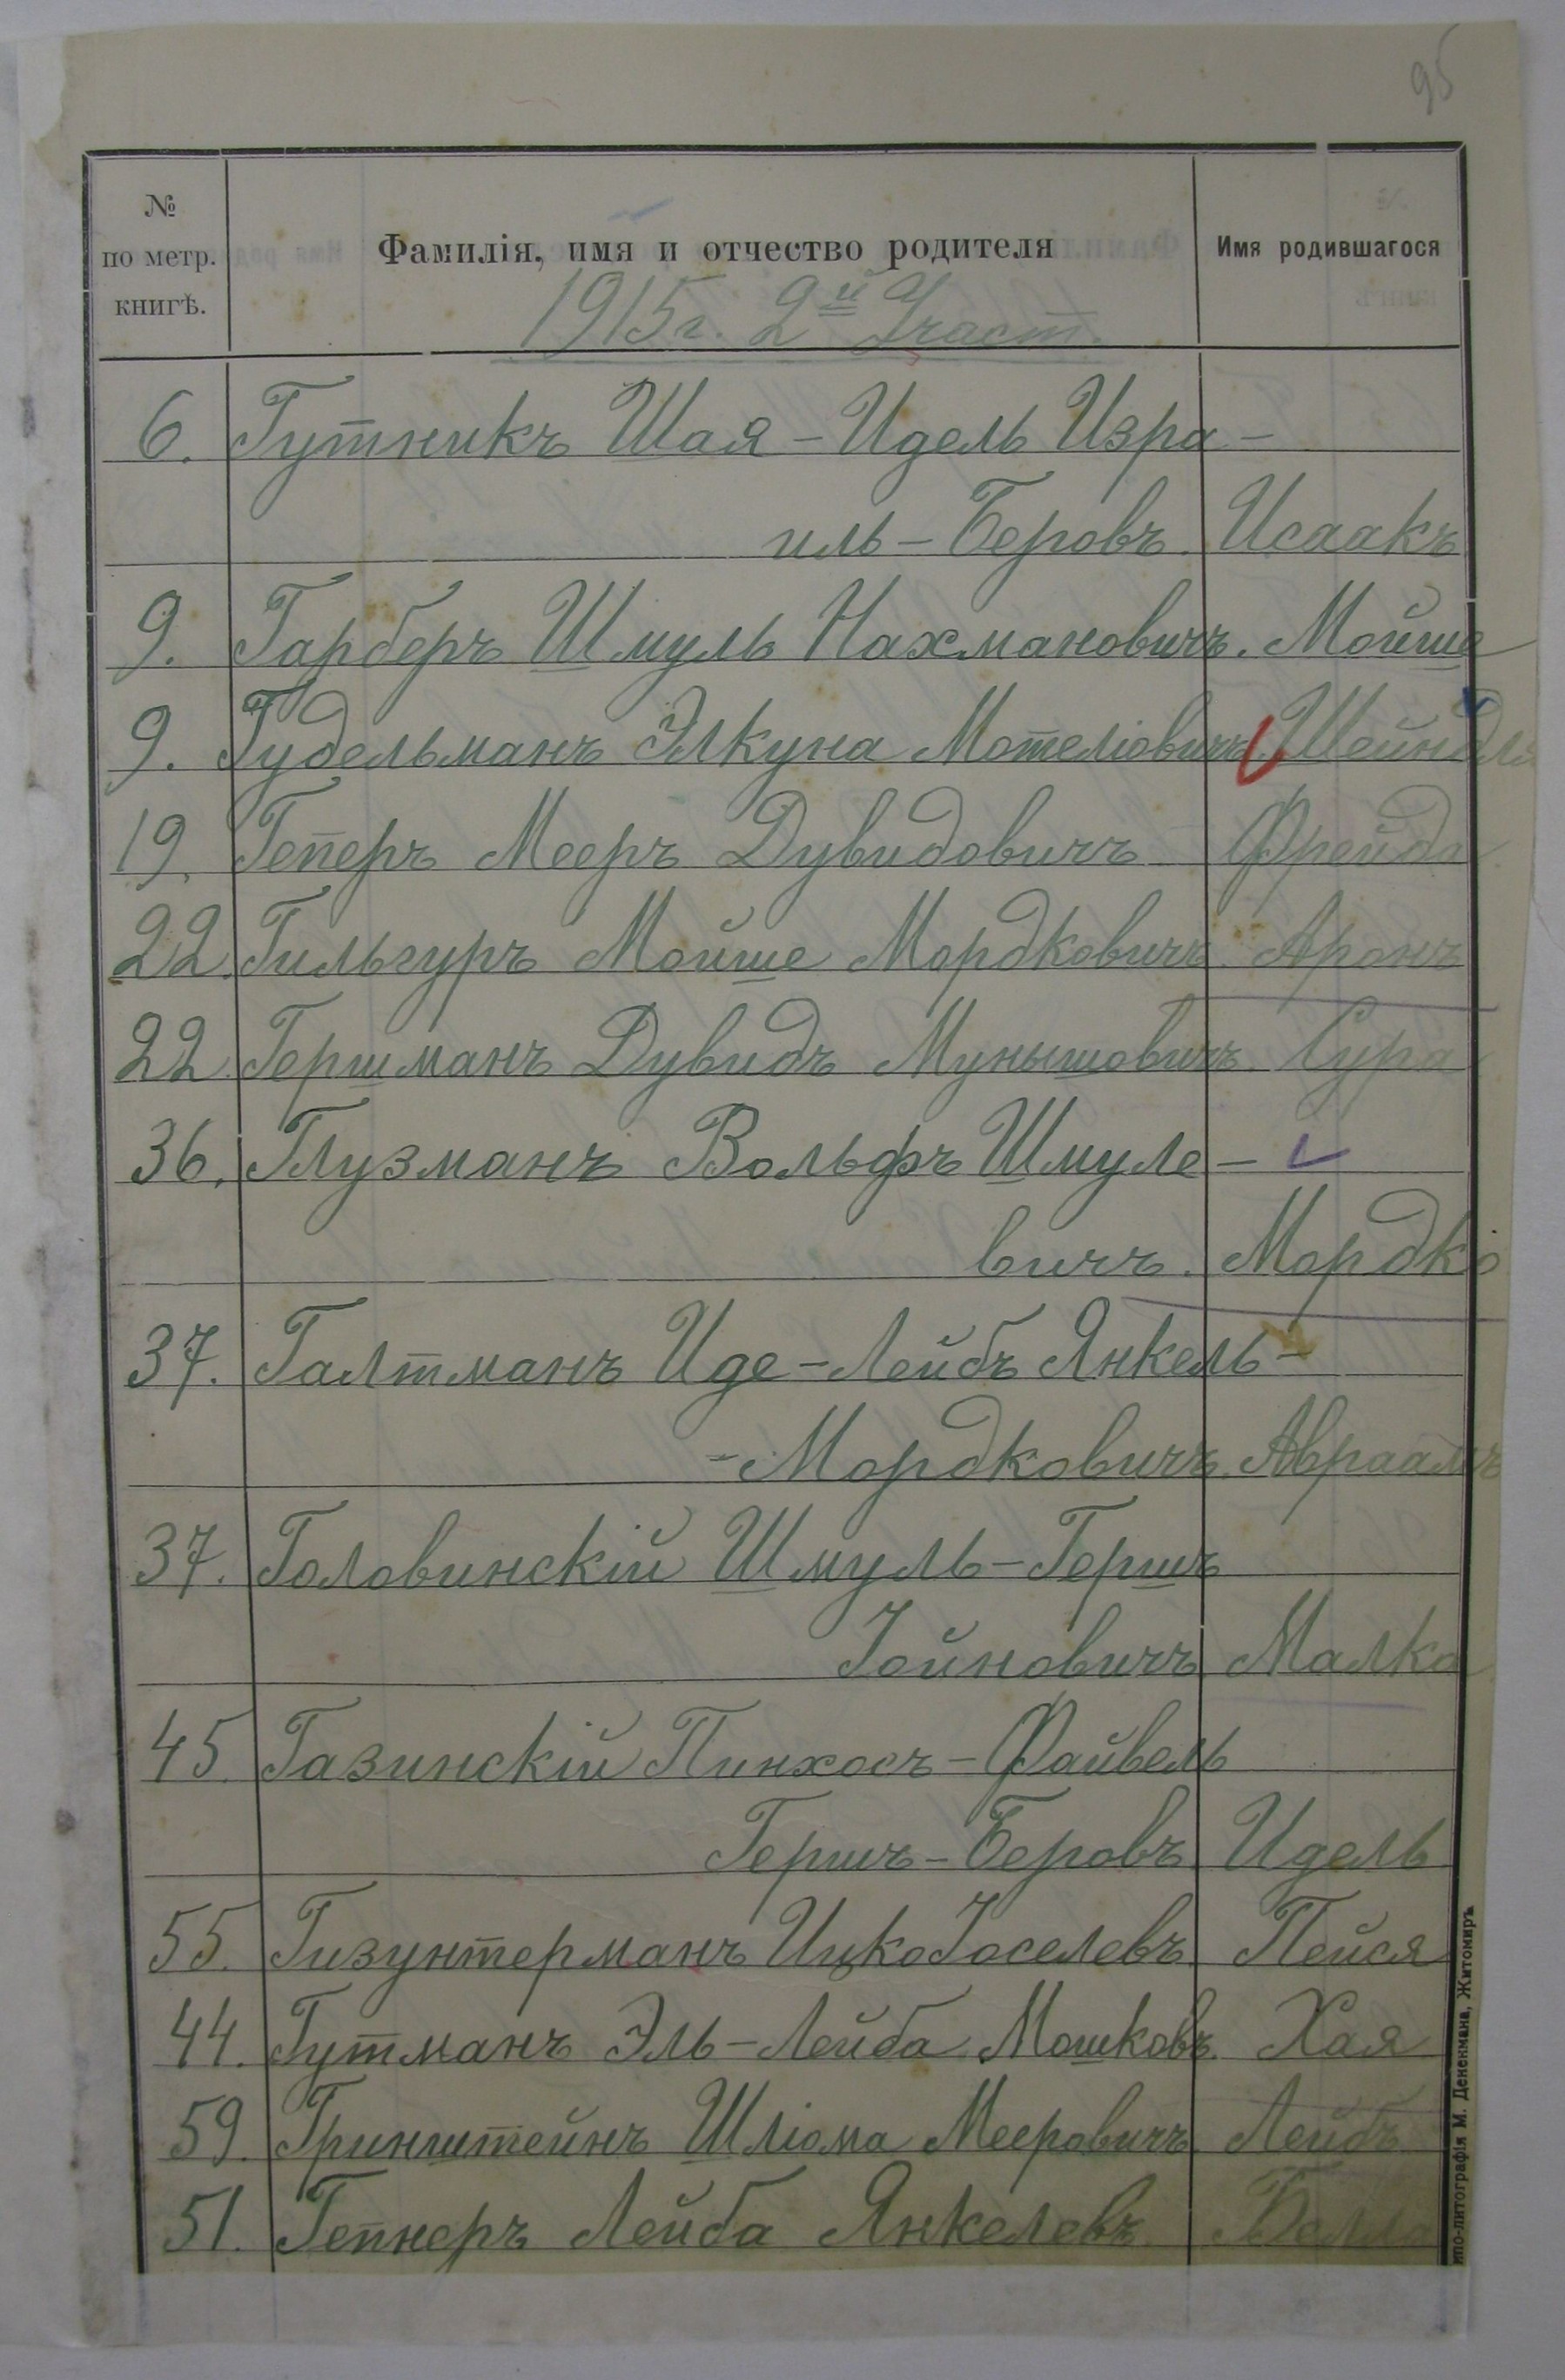 95
№ по метр. книгѣ.
Фамилія, имя и отчество родителя
Имя родившагося
1915 г. 2й Участ.
6. Гутникъ Шая - Идель Изра-
иль - Беровъ. Исаакъ
9. Гарберъ Шмуль Нахмановичъ. Мойше
9. Гудельманъ Элкуна Мотеліовичъ. Шейндля
19. Геперъ Мееръ Дувидовичъ Фрейда
22. Гильгуръ Мойше Мордковичъ. Аронъ
22. Гершманъ Дувидъ Мунышовичъ. Сура
36. Глузманъ Вольфъ Шмуле-
вичъ. Мордко
37. Галтманъ Иде - Лейбъ Янкель-
- Мордковичъ. Авраамъ
37. Головинскій Шмуль - Гершъ
Іойновичъ Малка
45. Газинскій Пинхосъ - Файвель
Гершъ - Беровъ Идель
55. Гизунтерманъ Ицко Іоселевъ. Пейся
44. Гутманъ Эль - Лейба Мошковъ. Хая
59. Гринштейнъ Шліома Мееровичъ Лейбъ
51. Гепнеръ Лейба Янкелевъ. Белла
ипо-литографія М. Дененмана, Житомиръ